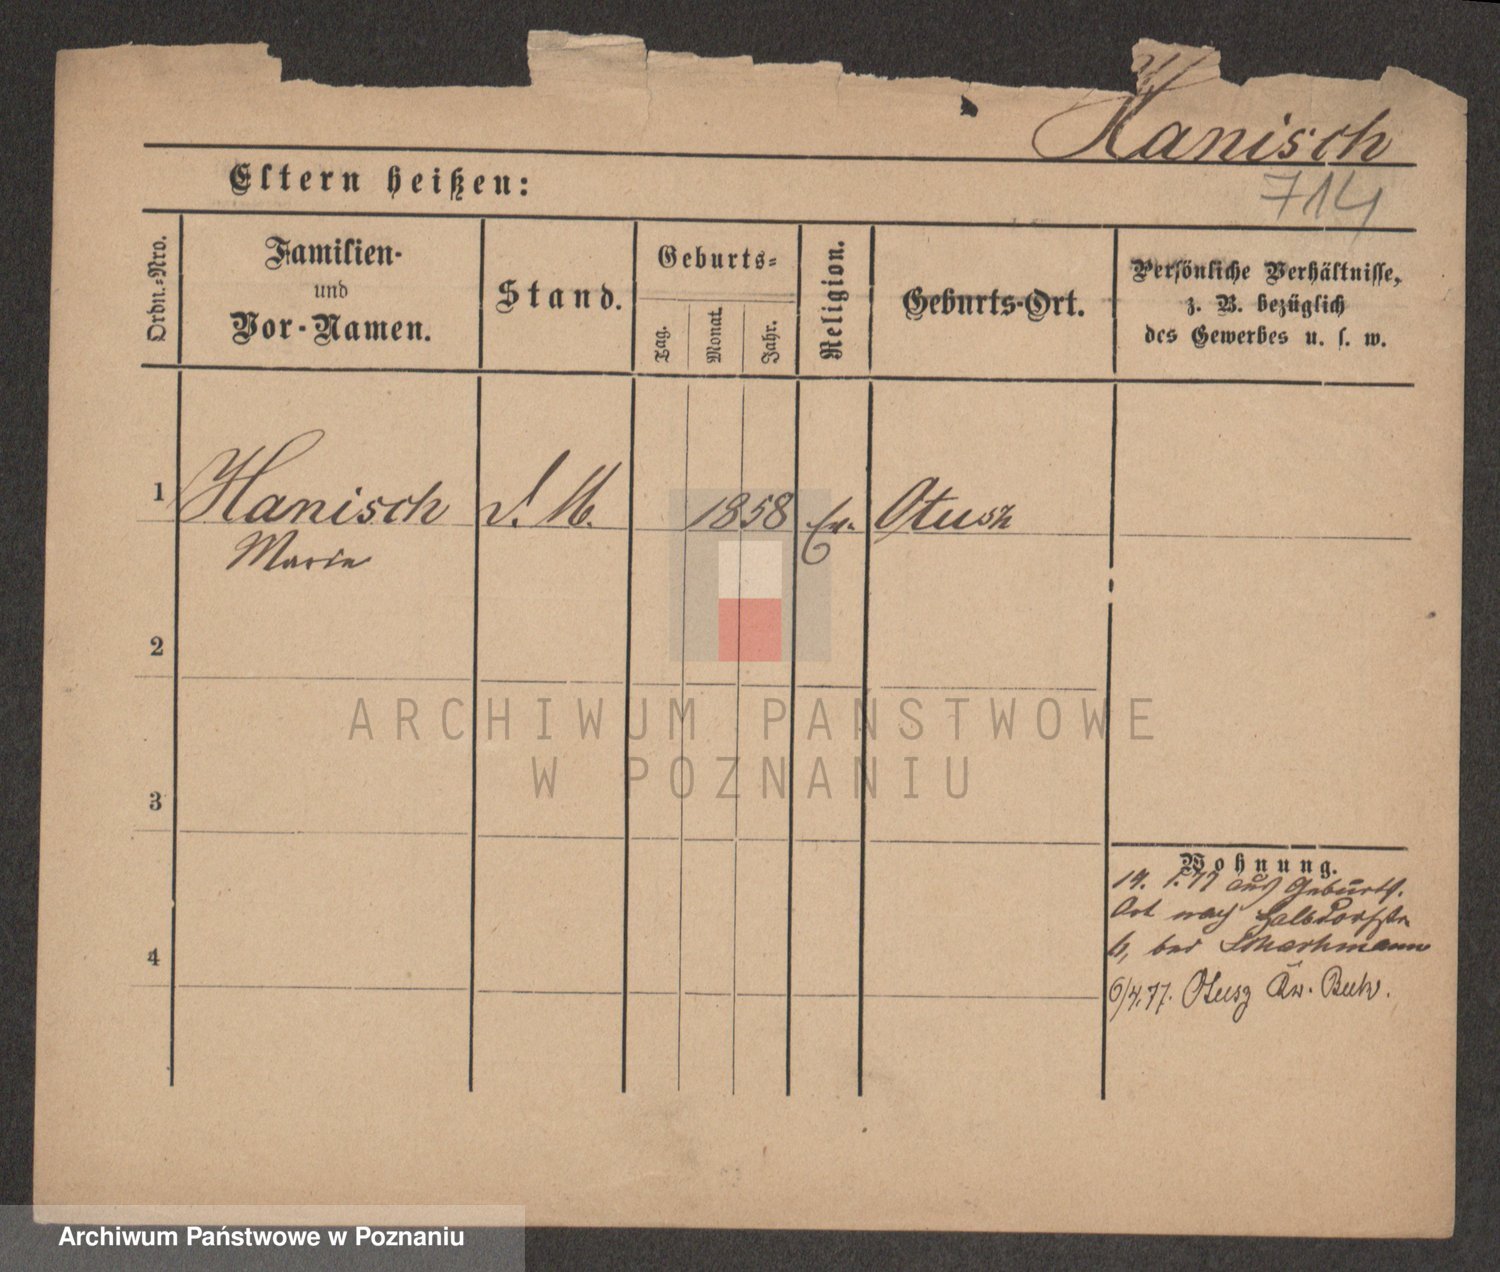 Hanisch
714
Eltern heißen:
Ordn.-Nro.
Familien-
und
Vor-Namen.
Stand.
Geburts-
Tag.
Monat.
Jahr.
Religion.
Geburts-Ort.
Persönliche Verhältnisse,
z. B. bezüglich
des Gewerbes u. s. w.
1 Hanisch D. M. 1858 Ev. Otusz
Marie
2
ARCHIWUM PAŃSTWOWE
W POZNANIU
3
Wohnung.
14. 1. 77 aus Geburts.
Ort nach Halbdorfstr
6, bei
4
6/4.77. Otusz Kr. Buk.
Archiwum Państwowe w Poznaniu